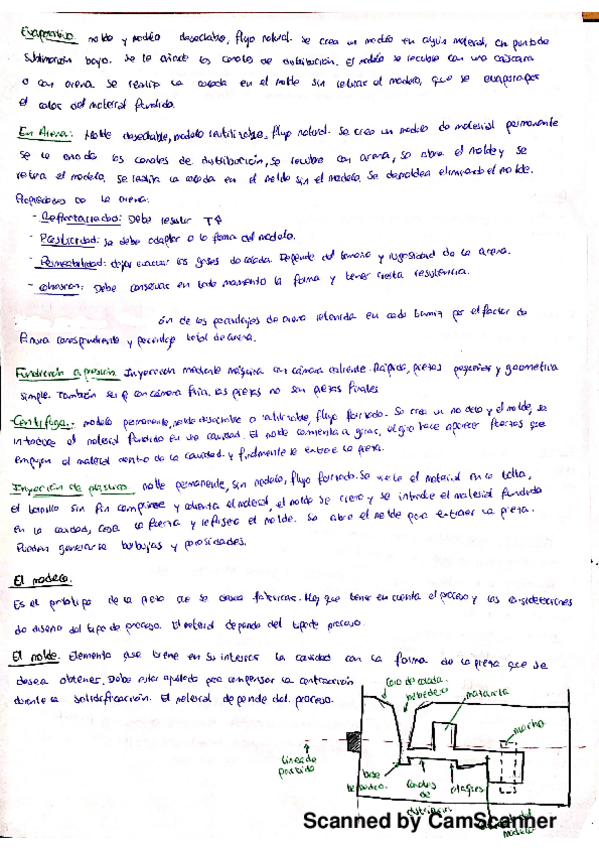 Evaporativo. molde y modelo desechable, flujo natural. Se crea un modelo en algún material, con punto de
sublimación bajo. Se le añade los canales de distribución. El modelo se recubre con una cáscara
o con arena. Se realiza la colada en el molde sin retirar el modelo, que se evapora por
el calor del material fundido.
En Arena: Molde desechable, modelo reutilizable, flujo natural. Se crea un modelo de material permanente
se le añade los canales de distribución, se recubre con arena, se abre el molde y se
retira el modelo. Se realiza la colada en el molde sin el modelo. Se desmoldea eliminando el molde.
Propiedades de la arena:
- Refractariedad: Debe resistir T↑
- Plasticidad: se debe adaptar a la forma del modelo.
- Permeabilidad: dejar evacuar los gases de colada. Depende del tamaño y rugosidad de la arena.
- Cohesión: Debe conservar en todo momento la forma y tener cierta resistencia.
ón de los porcentajes de arena retenida en cada tamiz por el factor de
finura correspondiente y porcentaje total de arena.
Fundición a presión. Inyección mediante máquina con cámara caliente. Rápida, piezas pequeñas y geometría
simple. También se con cámara fría. Las piezas no son piezas finales
Centrífuga.- modelo permanente, molde desechable o reutilizable, flujo forzado. Se crea un modelo y el molde, se
introduce el material fundido en una cavidad. El molde comienza a girar, el giro hace aparecer fuerzas que
empujan el material dentro de la cavidad y finalmente se extrae la pieza.
Inyección de plástico. molde permanente, sin modelo, flujo forzado. Se vierte el material en la tolva,
el tornillo sin fin comprime y calienta el material, el molde se cierra y se introduce el material fundido
en la cavidad, cesa la fuerza y refrigera el molde. Se abre el molde para extraer la pieza.
Pueden generarse burbujas y porosidades.
El modelo.
Es el prototipo de la pieza que se desea fabricar. Hay que tener en cuenta el proceso y las consideraciones
de diseño del tipo de proceso. El material depende del tipo de proceso.
El molde. Elemento que tiene en su interior la cavidad con la forma de la pieza que se
desea obtener. Debe estar ajustado para compensar la contracción
durante la solidificación. El material depende del proceso.
bebedero
mazarota
macho
Línea de
partición
base
bebedero
canales
de
distribución
ataques
modelo
Scanned by CamScanner